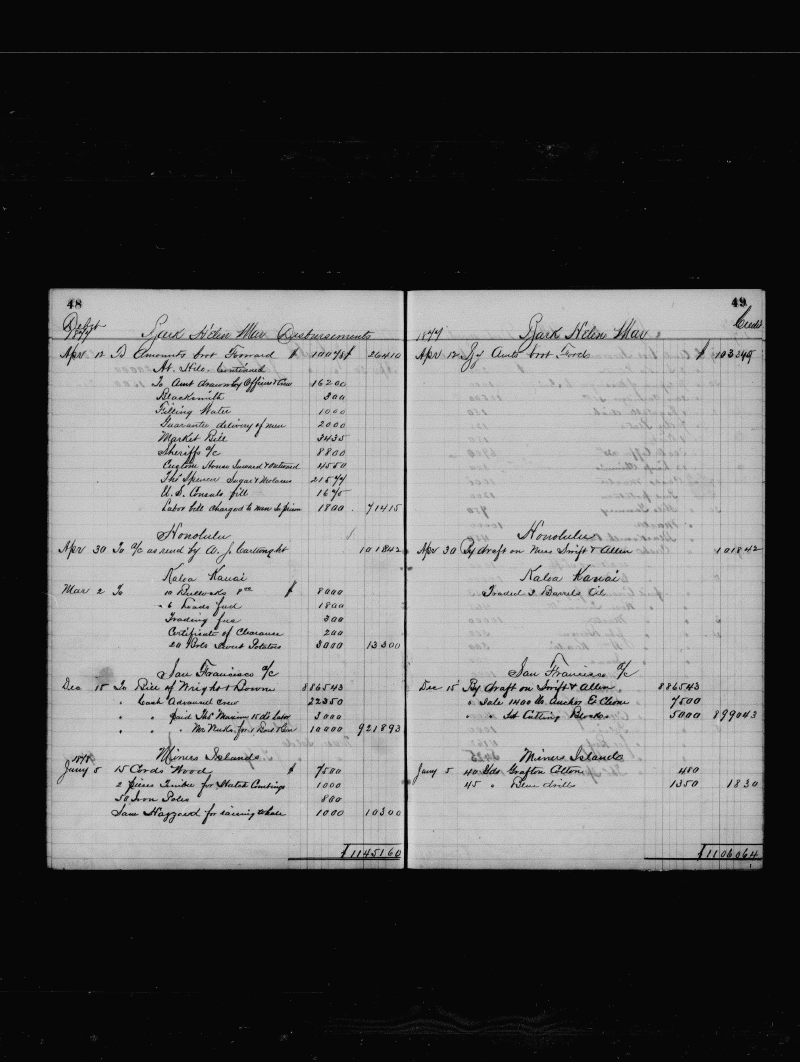 48
Debit
1877 Bark Helen Mar Disbursements
Apr 12 To Amounts brot Forward $ 26410
At Hilo Continued
To Amt drawn by Officers & Crew 16200
Blacksmith 300
Filling Water 1000
Guarantee delivery of men 2000
Market Bill 3435
Sheriffs a/c 8800
Custom House Inward & Outward 4550
Thos Spencer Sugar & Molasses 21577
U.S. Consuls bill 1675
Labor bill charged to men 1800 71415
Honolulu
Apr 30 To a/c as rend by A. J. Cartwright 101842
Koloa Kauai
Mar 2 To 10 Bullocks $ 8000
" 6 Loads fuel 1800
Trading fees 300
Certificate of Clearance 200
20 Bbls Sweet Potatoes 3000 13300
San Francisco a/c
Dec 15 To Bill of Wright & Bowne 886543
" Cash Advanced crew 22350
" " paid Thos Labor 3000
" " " Mr 10000 921893
1878 Miners Islands
Jany 5 15 Cords Wood $ 7500
2 pieces Timber for Hatch Coatings 1000
50 Iron Poles 800
Sam Hazzard for raising whale 1000 10300
$1145160
49
Credit
1877 Bark Helen Mar
Apr 12 By Amts brot Forwd $ 103349
Honolulu
Apr 30 By draft on Mess Swift & Allen 101842
Koloa Kauai
Traded 3 Barrels Oil
San Francisco a/c
Dec 15 By draft on Swift & Allen 886543
" Sale 1400 lb Anchor & Chain 7500
" " Set Cutting Blocks 5000 899043
Miners Islands
Jany 5 40 Yds Grafton Cotton 480
45 " Blue drills 1350 1830
$1106064